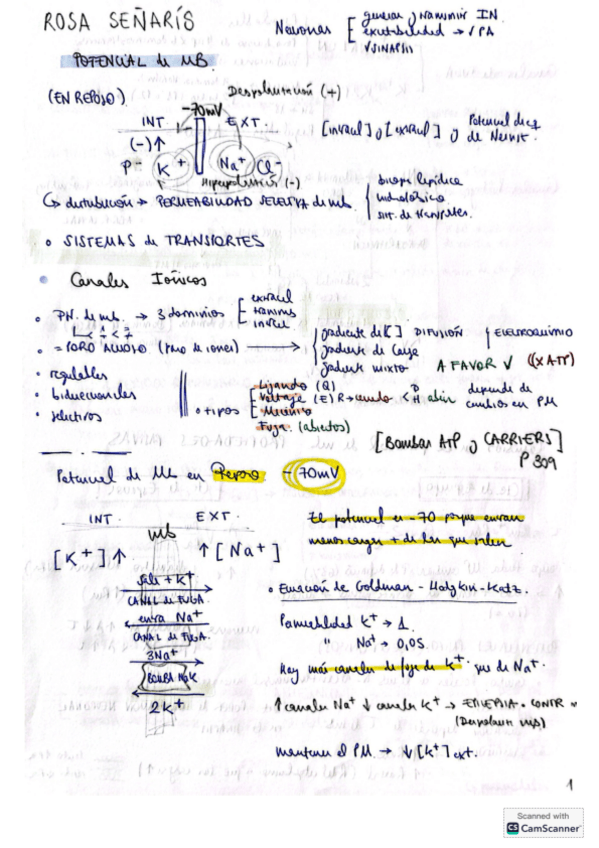 ROSA SEÑARÍS
Neuronas [ generar y transmitir IN.
excitabilidad → √ PA
√ SINAPSIS
POTENCIAL de MB.
(EN REPOSO)
Despolarización (+)
-70mV
INT. EXT.
(-)↑
P⁻ K⁺ Na⁺ Cl⁻
Hiperpolarización (-)
[intracel] y [extracel] y
Potencial de eq. de Nernst.
↳ distribución → PERMEABILIDAD SELECTIVA de mb.
bicapa lipídica
hidrofóbica
sist. de transportes.
• SISTEMAS de TRANSPORTES
• Canales Iónicos
• PN. de mb. → 3 dominios [ extracel
transmb
intracel
• = PORO ACUOSO (paso de iones) →
gradiente de [ ] DIFUSIÓN
gradiente de carga
gradiente mixto
ELECTROQUÍMICO
A FAVOR √ (X ATP)
• regulables
• bidireccionales
• selectivos
• tipos
Ligando (Q)
Voltaje (E)
Mecánico
Fuga. (abiertos)
abierto
depende de cambios en PM
[Bombas ATP y CARRIERS]
P 309
Potencial de Mb en Reposo -70mV
INT. EXT.
mb
[K⁺]↑. ↑[Na⁺]
sale + K⁺
CANAL de FUGA
entra Na⁺
CANAL de FUGA.
3Na⁺
BOMBA Na K
2K⁺
El potencial es -70 porque entran
menos cargas + de las que salen
• Ecuación de Goldman - Hodgkin - Katz.
Permeabilidad K⁺ → 1
" Na⁺ → 0,05
Hay más canales de fuga de K⁺ que de Na⁺.
↑ canales Na⁺ ↓ canales K⁺ → EPILEPSIA
mantener el PM → ↓[K⁺] ext.
1
Scanned with
CS CamScanner